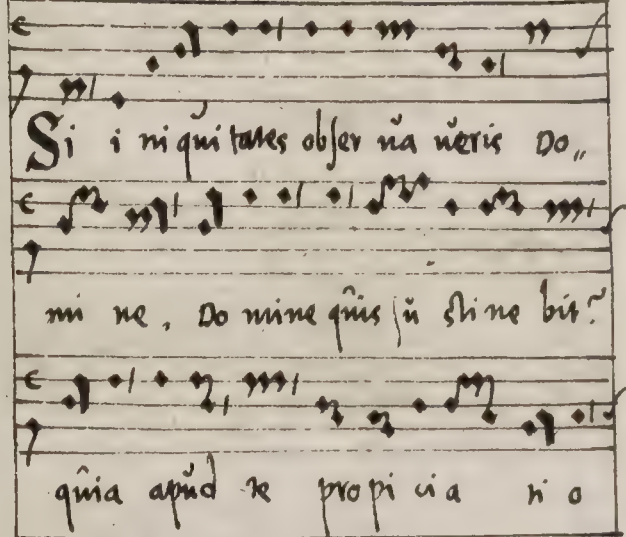 Si i ni qui tates obser ua ueris Do,,
mi ne, Do mine quis su stine bit?
quia apud te propicia ti o